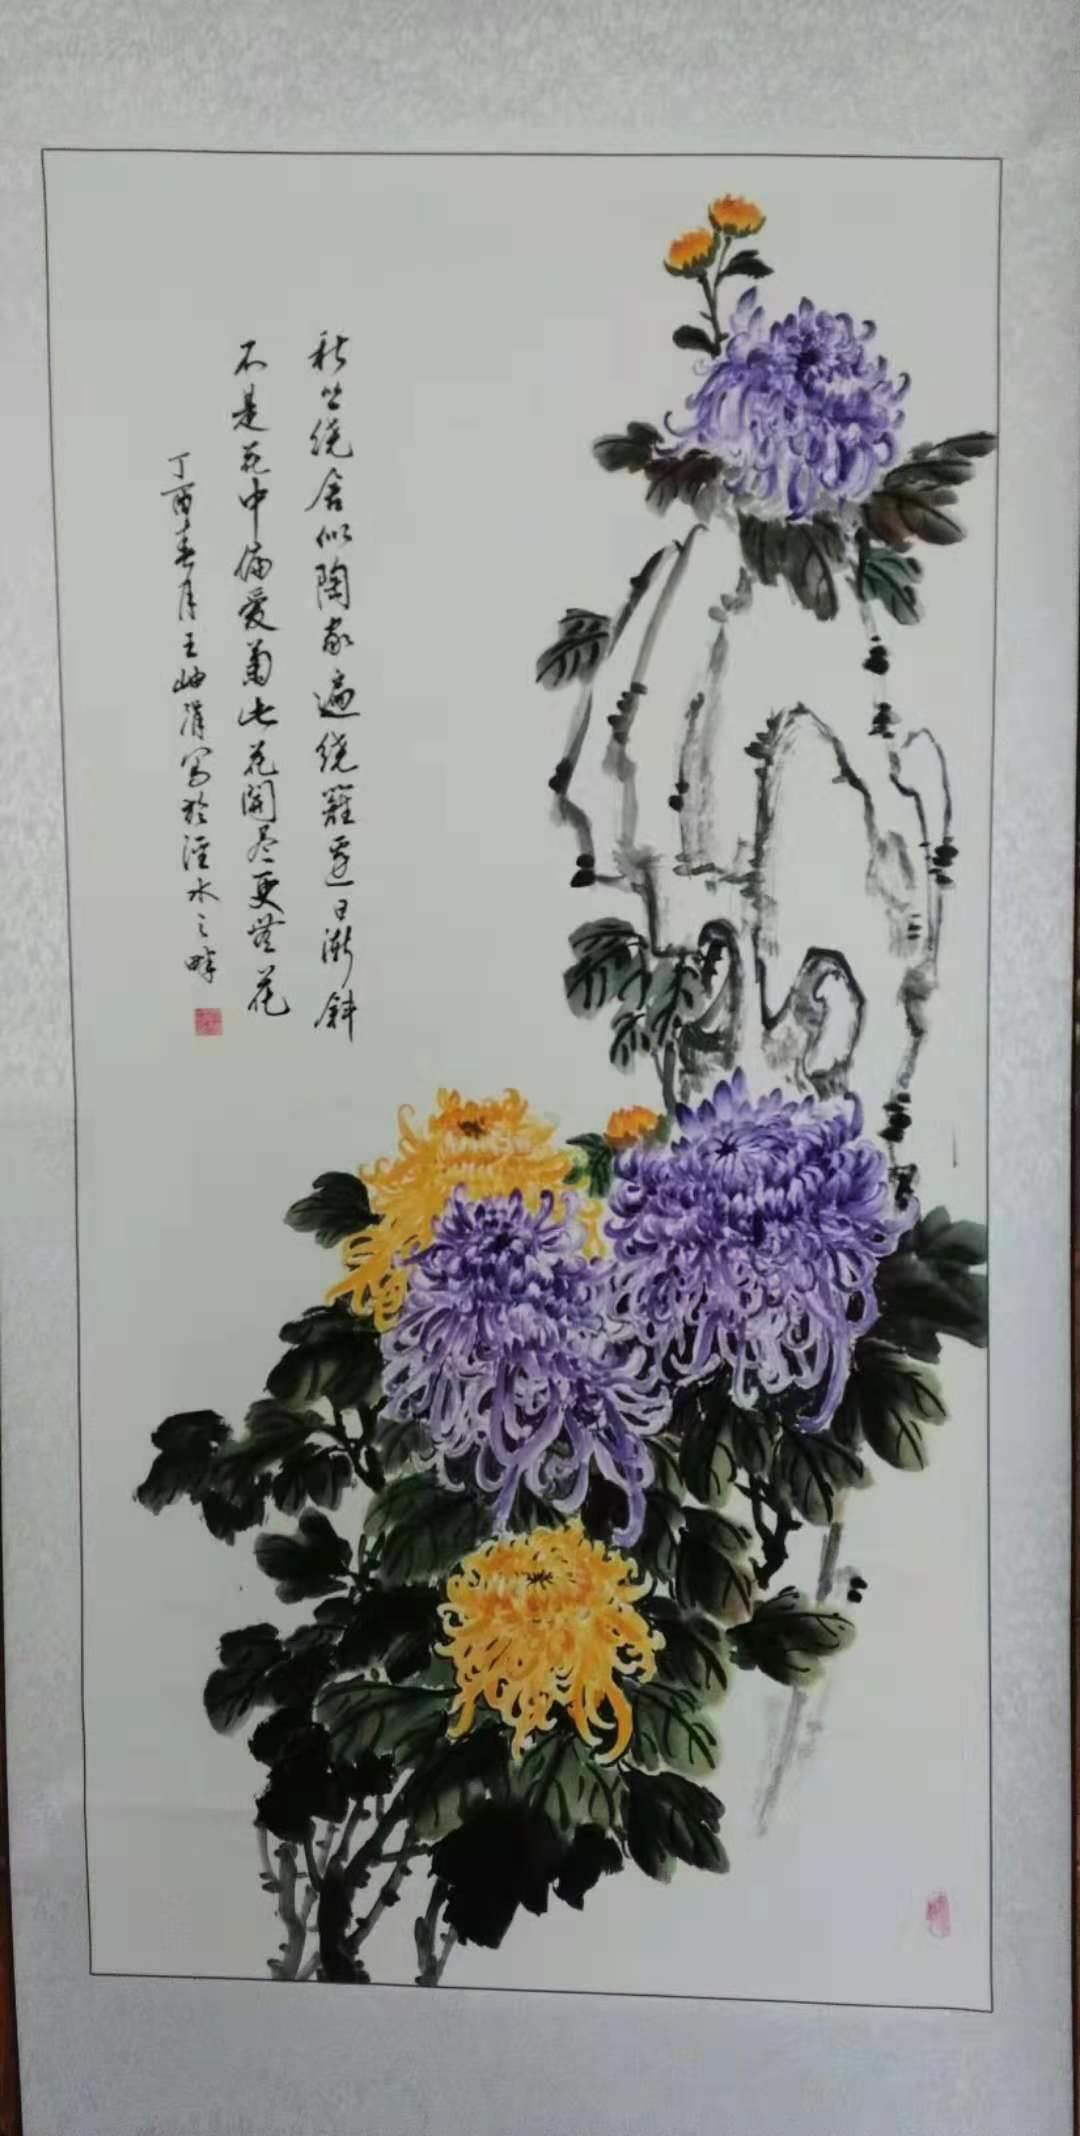 秋丛绕舍似陶家遍绕籬邊日渐斜
不是花中偏愛菊此花開尽更無花
丁酉春月王岫写於泾水之畔